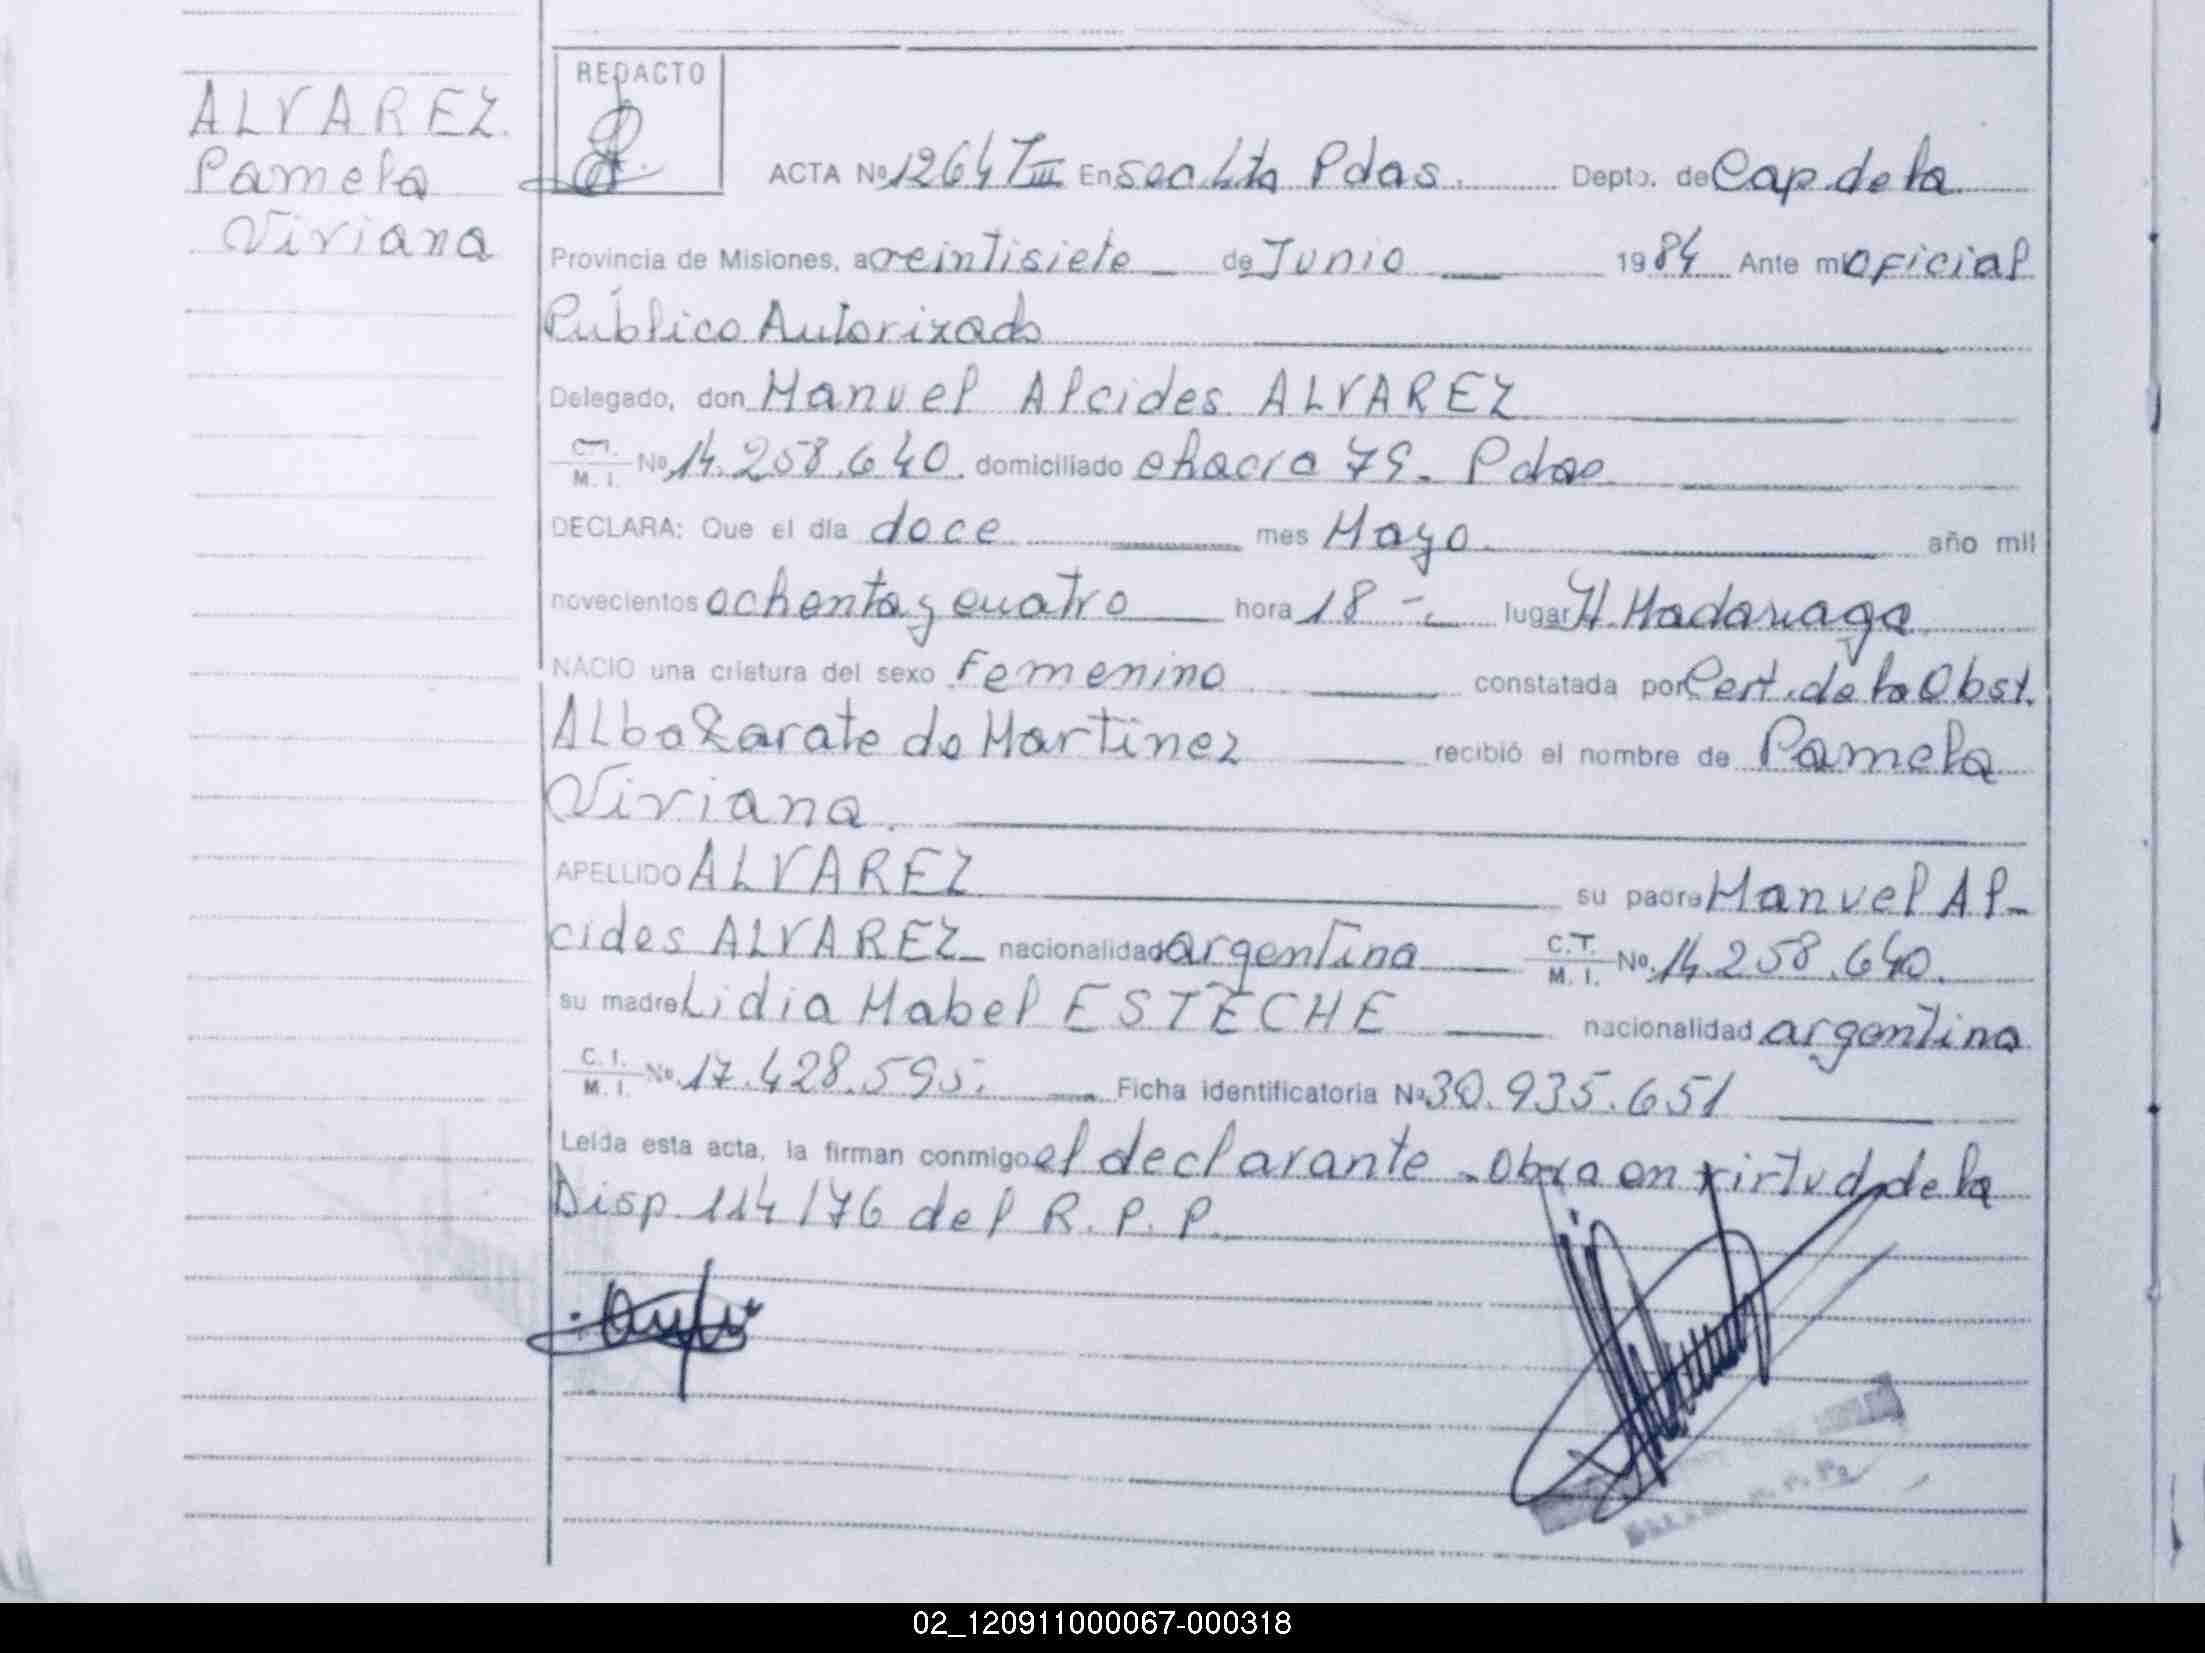 ALVAREZ
Pamela
Viviana
REDACTO
ACTA Nº 1264 T III En Secc. 4ta Pdas. Depto. de Cap. de la
Provincia de Misiones, a veintisiete de Junio 1984 Ante mi Oficial
Público Autorizado
Delegado, don Manuel Alcides ALVAREZ
C.I. M.I. Nº 14.258.640. domiciliado chacra 79- Pdas
DECLARA: Que el día doce mes Mayo año mil
novecientos ochenta y cuatro hora 18 -. lugar H. Madariaga
NACIO una criatura del sexo Femenino constatada por Cert. de la Obst.
Alba Zarate de Martinez recibió el nombre de Pamela
Viviana.
APELLIDO ALVAREZ su padre Manuel Al-
cides ALVAREZ nacionalidad argentina C.T. M.I. Nº. 14.258.640.
su madre Lidia Mabel ESTECHE nacionalidad argentina
C.I. M.I. Nº. 17.428.595. Ficha identificatoria Nº 30.935.651
Leída esta acta, la firman conmigo el declarante. Obra en virtud de la
Disp. 114/76 del R.P.P.
02_120911000067-000318